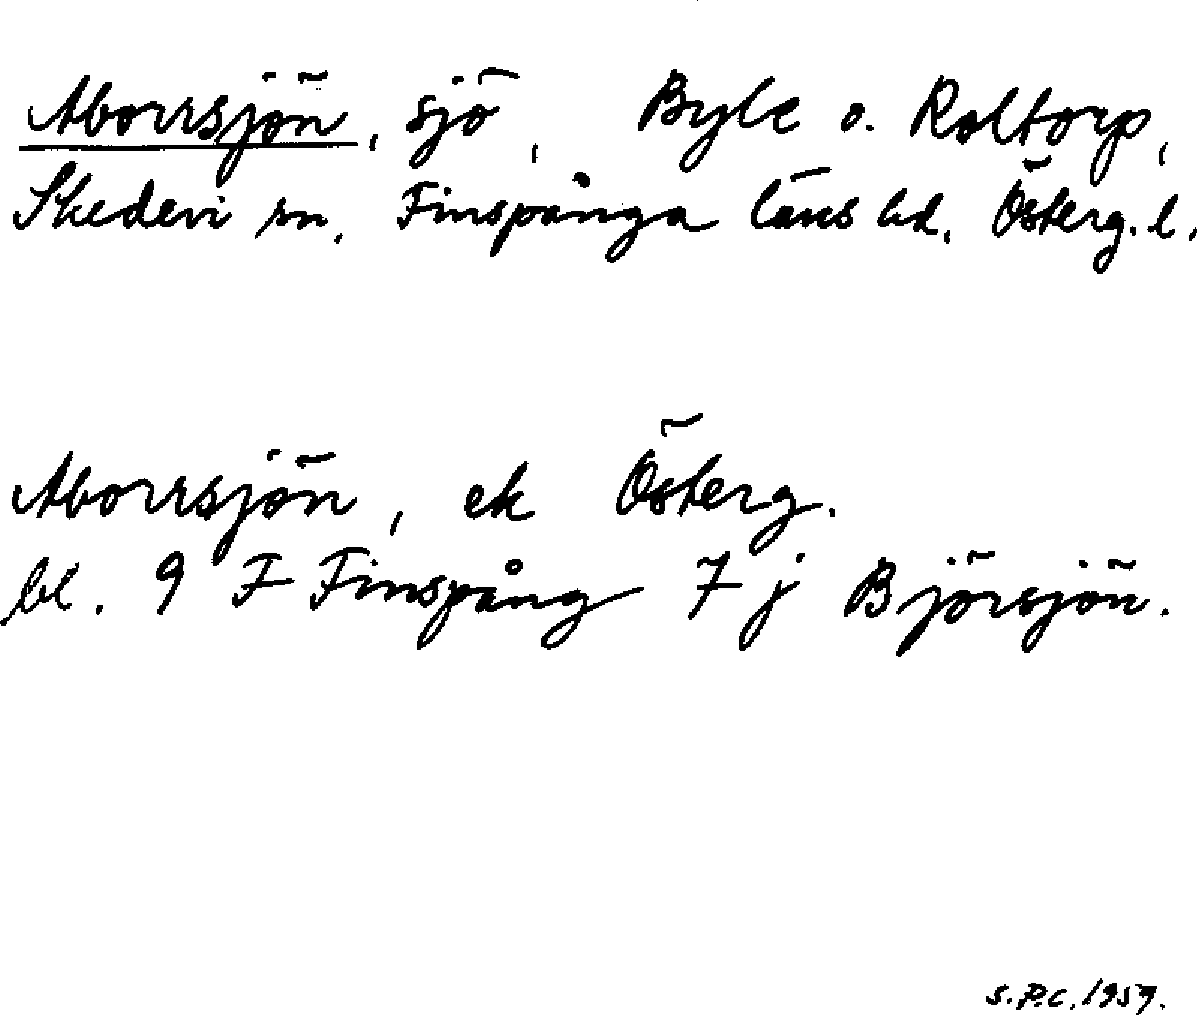 Aborrsjön, sjö, Byle o. Roltorp,
Skedevi sn. Finspånga läns hd. Österg. l.
Aborrsjön, ek Österg.
bl. 9 F Finspång 7 j Björsjön.
S.P.C. 1959.